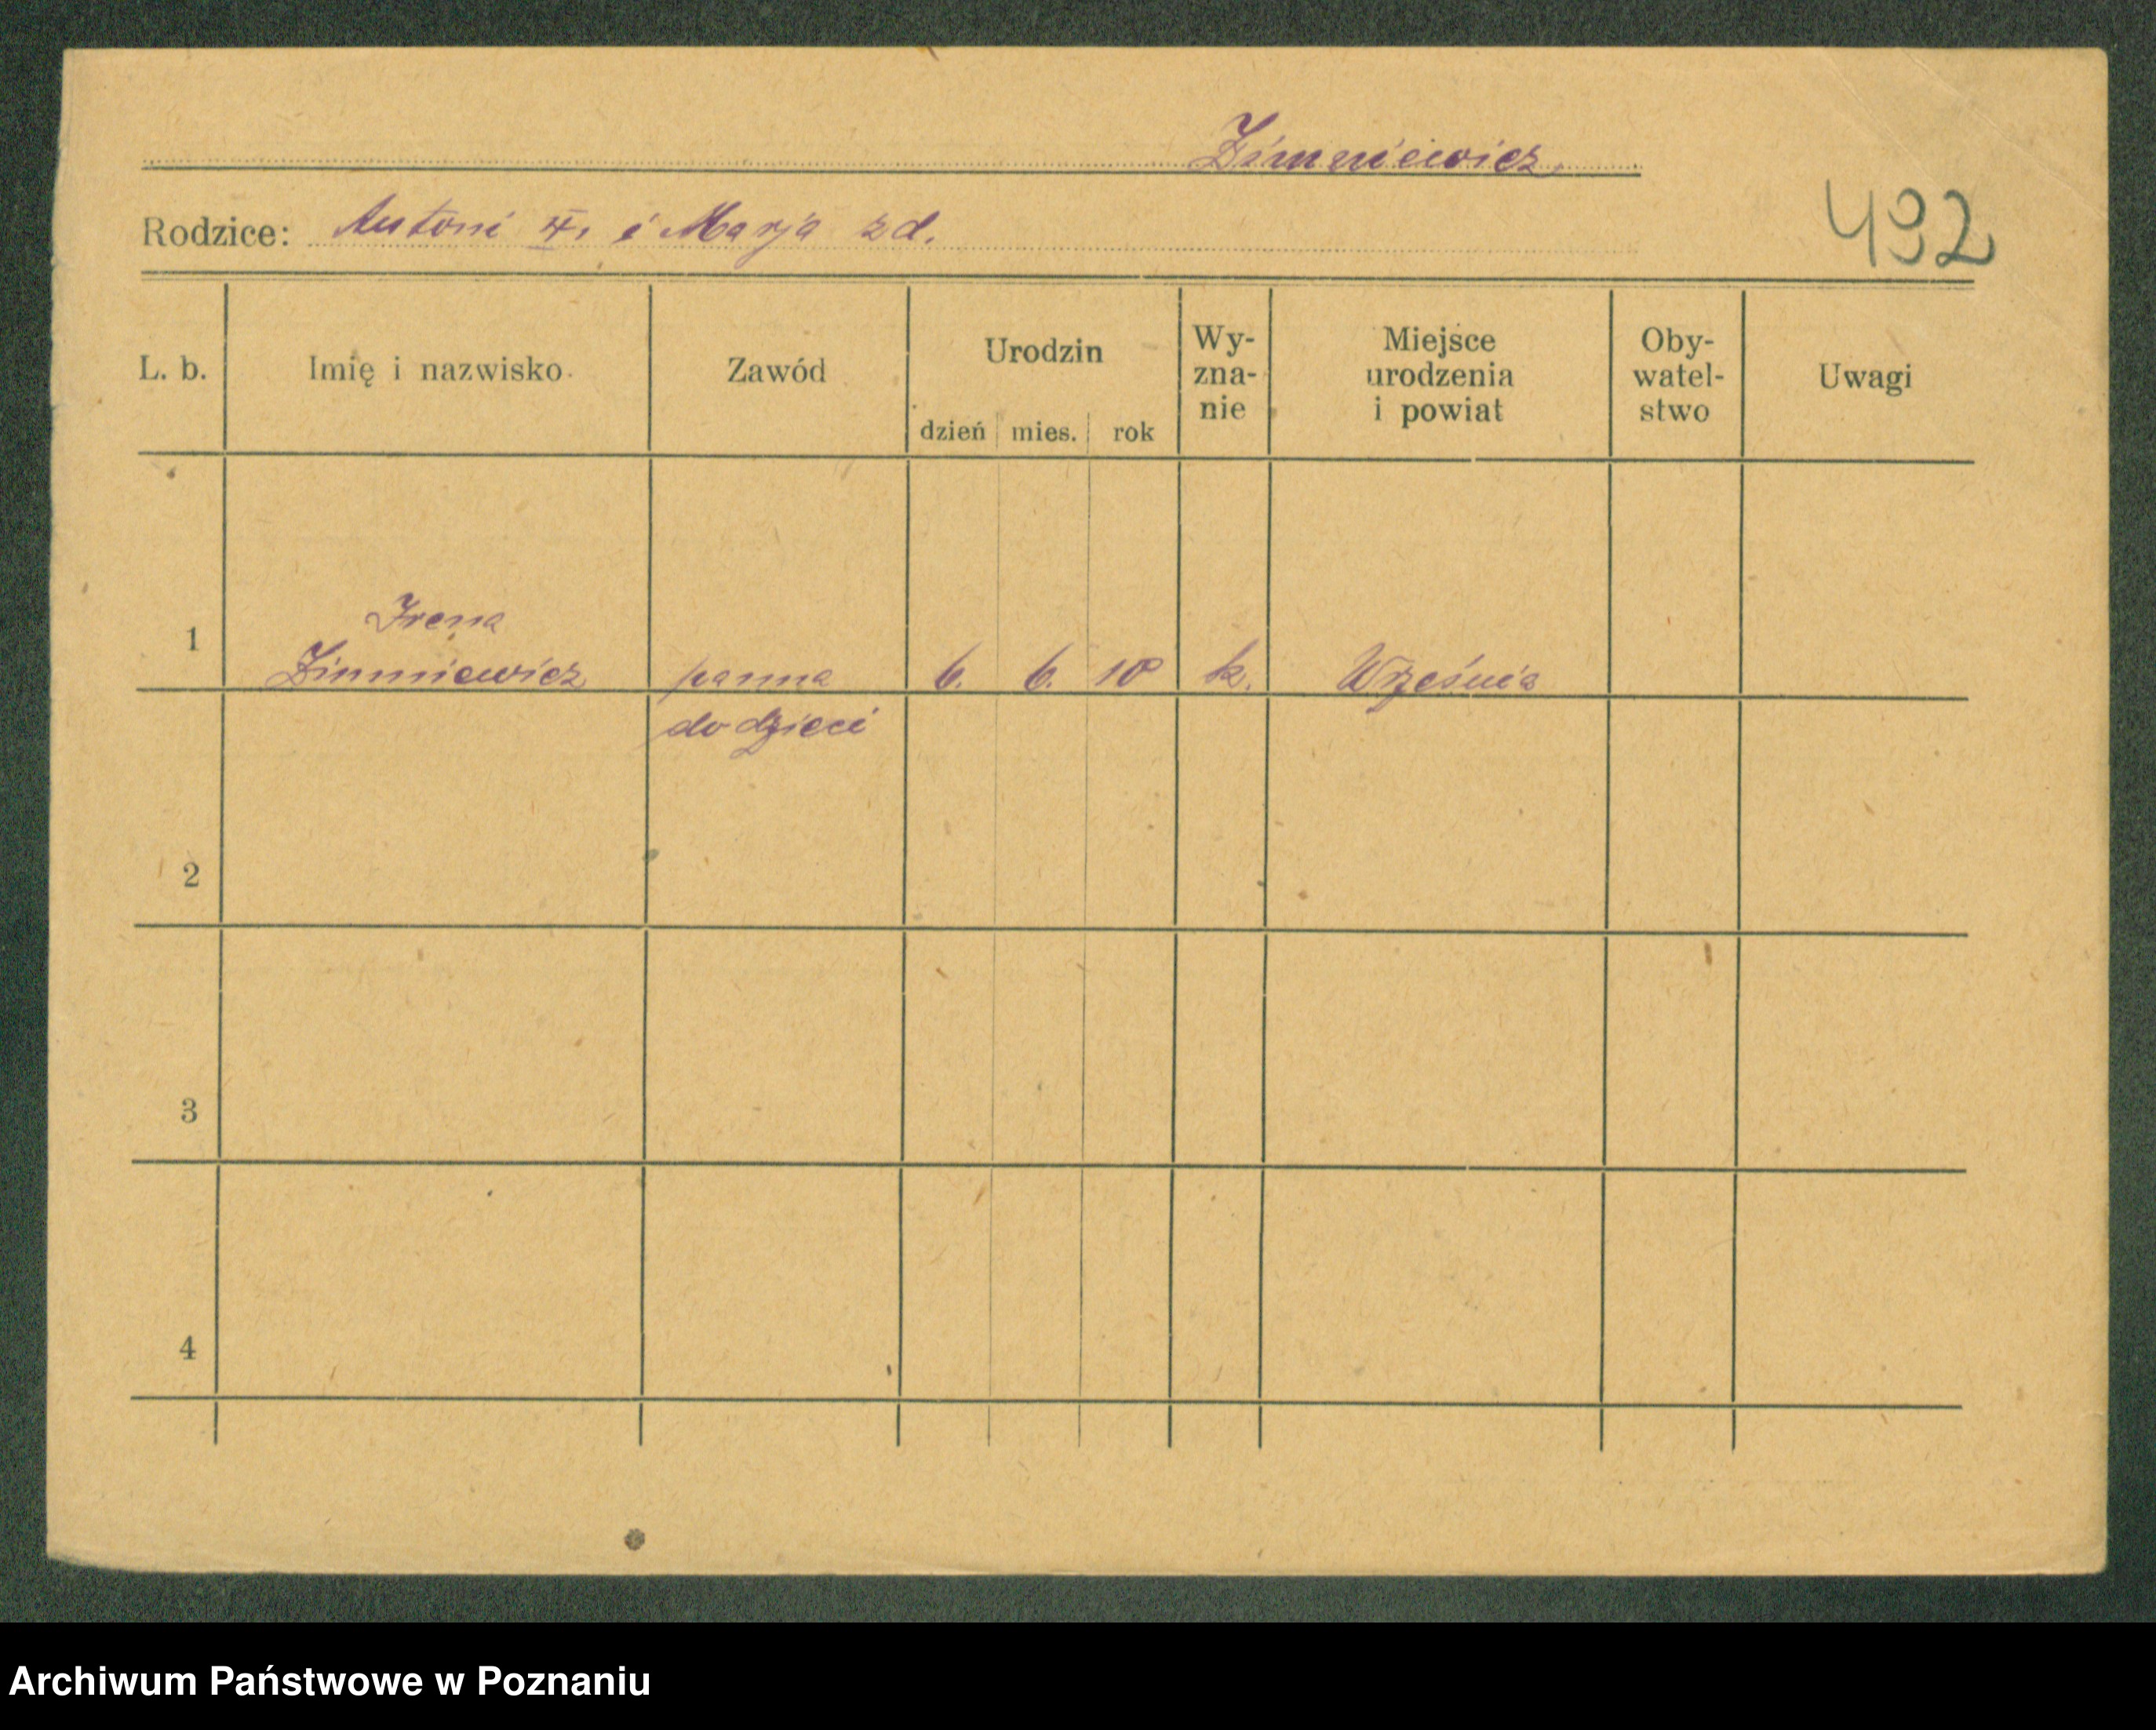 Zimniewicz.
Rodzice: Antoni i Marja zd.
492
L. b. Imię i nazwisko. Zawód Urodzin dzień mies. rok Wy-zna-nie Miejsce urodzenia i powiat Oby-watel-stwo Uwagi
Irena
1 Zimniewicz panna 6. 6. 10 k. Września
do dzieci
2
3
4
Archiwum Państwowe w Poznaniu